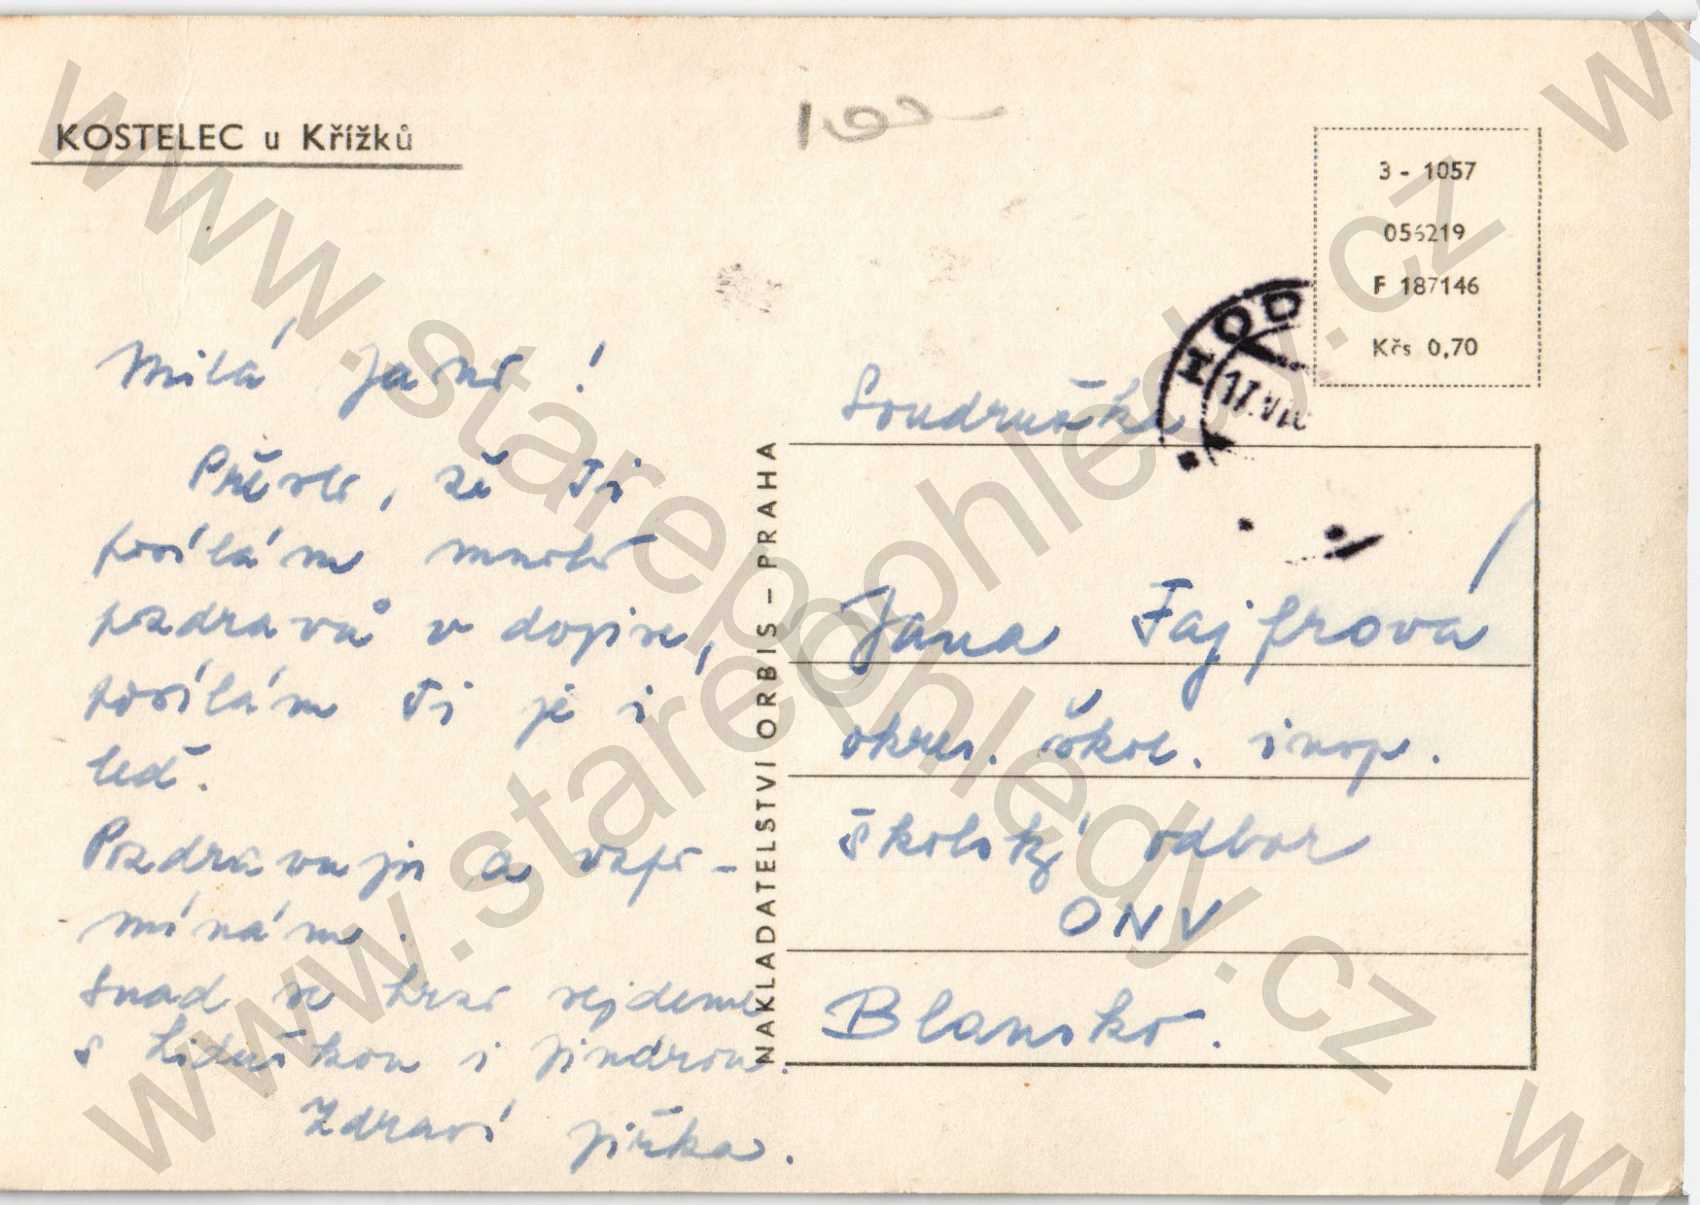 KOSTELEC u Křížků
3 - 1057
056219
F 187146
Kčs 0,70
HOD
17.VI
Milá Jano!
Přesto, že Ti
posílám mnoho
pozdravů v dopise,
posílám Ti je i
teď.
Pozdravuji a vzpo-
mínám.
Snad se brzo sejdeme
s Liduškou i Jindrou.
Zdraví Jiřka.
NAKLADATELSTVÍ ORBIS – PRAHA
Soudružka
Jana Fajfrová
okres. škol. insp.
školský odbor
ONV
Blansko.
www.starepohledy.cz
www.starepohledy.cz